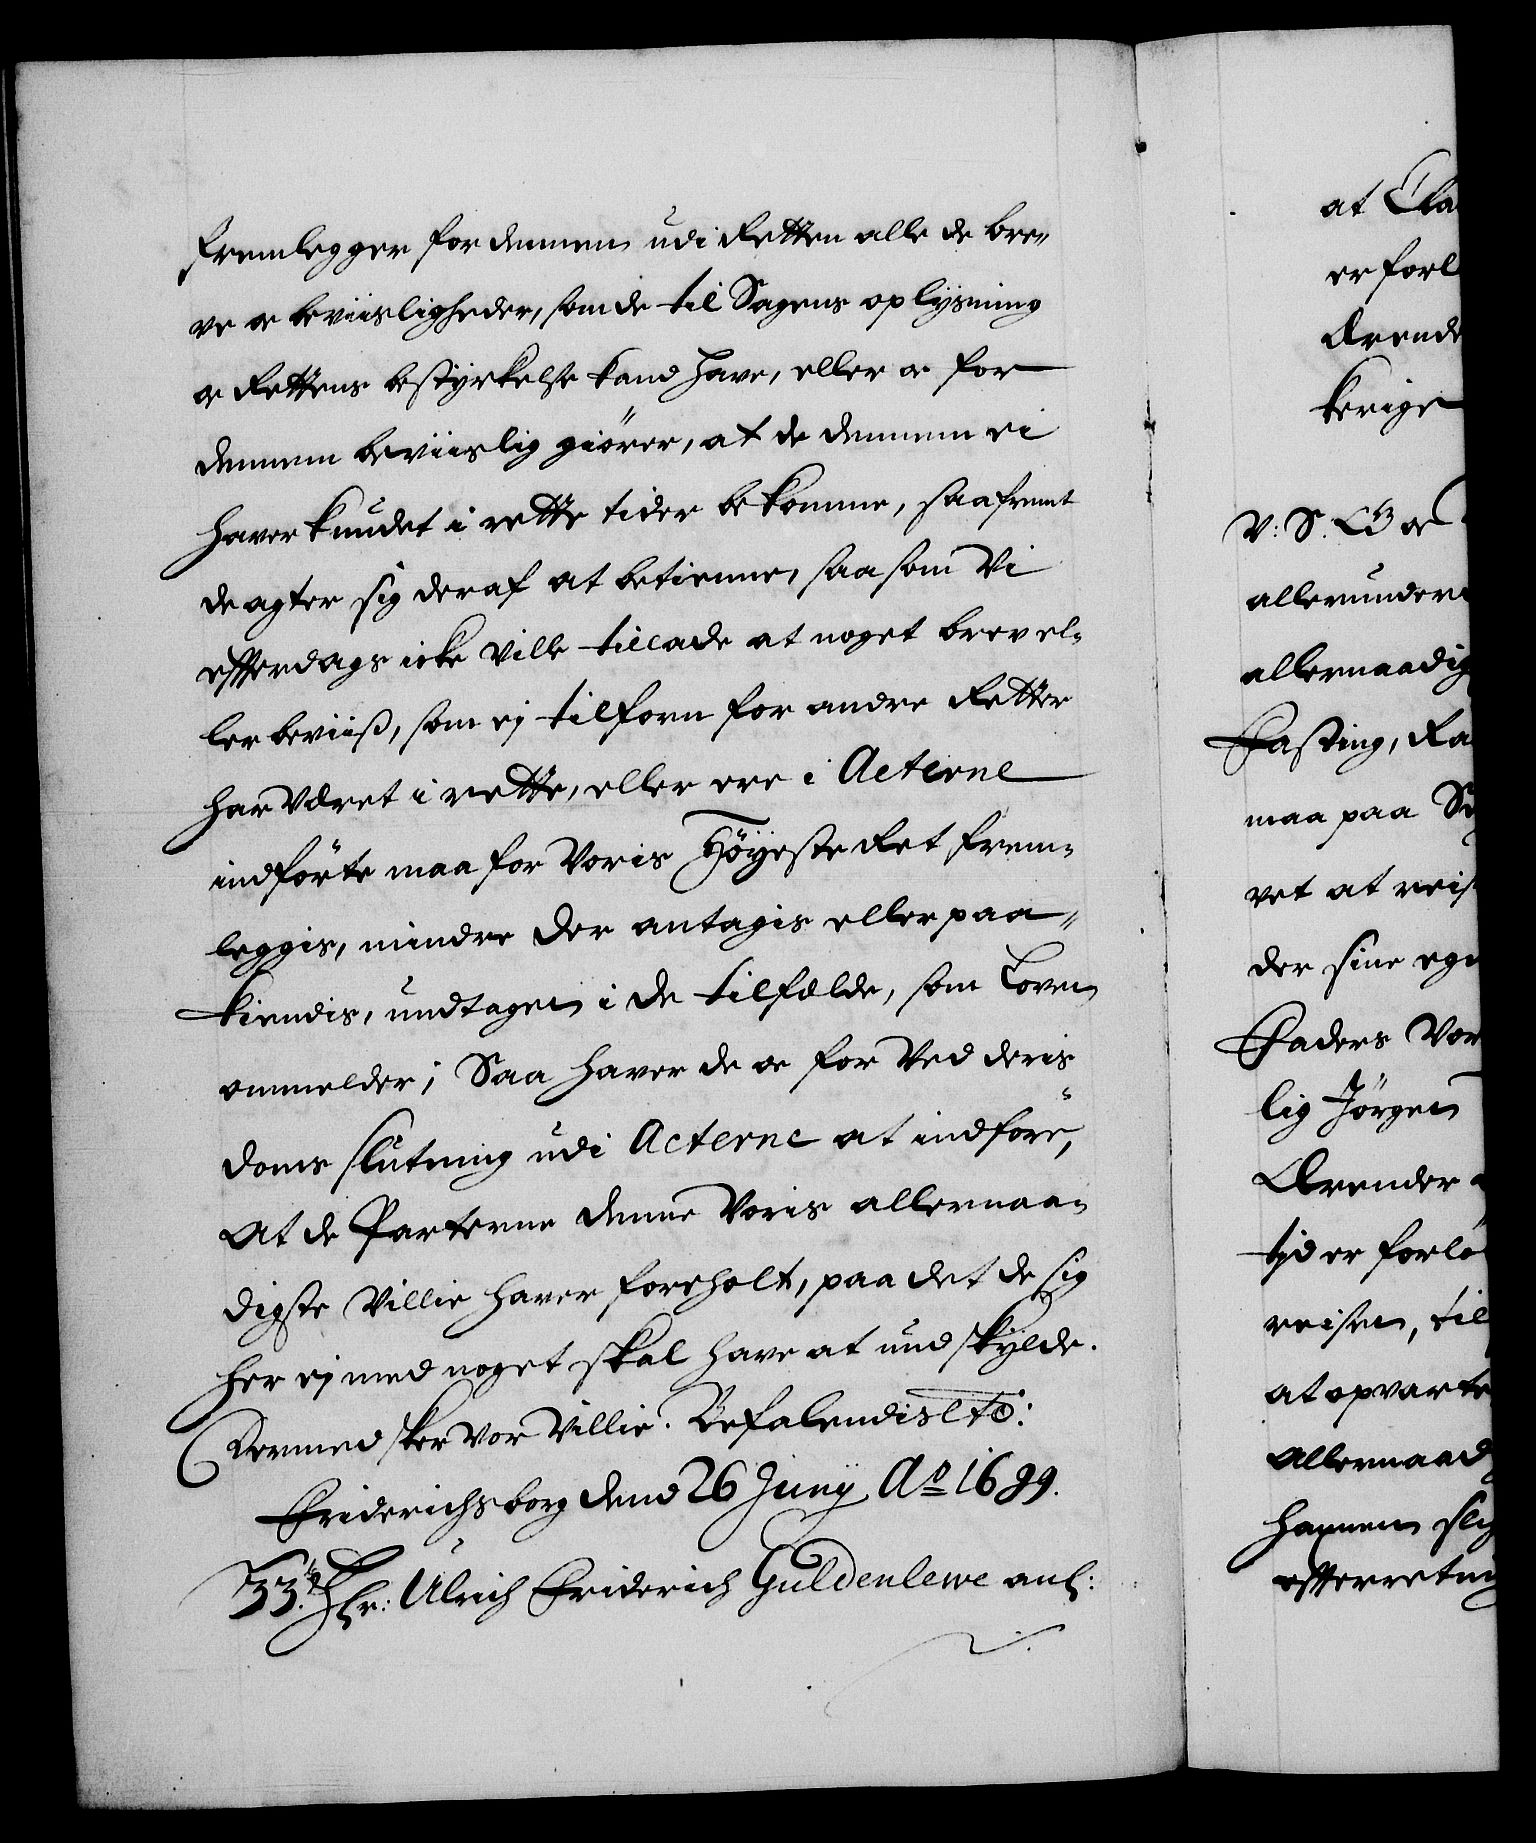 fremlegger for dennem udi Retten alle de bre„
ve oc beviisligheder, som de til Sagens oplysning
oc Rettens bestyrkelse kand have, eller oc for
dennem beviislig giörer, at de dennem ei
haver kundet i rette tider bekomme, saafremt
de agter sig deraf at betienne, saasom Vi
efterdags icke ville tillade at noget brev el„
ler beviiß, som ej tilforn for andre Retter
har været i rette, eller ere i Acterne
indförte maa for Voris Höyeste Ret frem„
leggis, mindre der antagis eller paa„
kiendis, undtagen i de tilfælde, som Loven
ommelder; Saa haver de oc for Ved deris
doms slutning udi Acterne at indföre,
At de Parterne denne Voris allernaa„
digste Villie haver foreholt, paa det de sig
her ej med noget skal have at undskylde.
Dermed skeer vor Villie. Befalendis etc:
Friderichsborg dend 26 Junij Ao 1689.
33. Hr: Ulrich Friderich Guldenlewe anl:
at Cla
er forl
Ærende
kerige
V: S. G B oc
allerunder
allernaadig
Fasting, Ra
maa paa
vet at reis
der sine ege
Faders Vor
lig Jörgen
Ærender
tid er forlö
reisen, til
at opvarte
Allernaad
hannem slig
efterretning